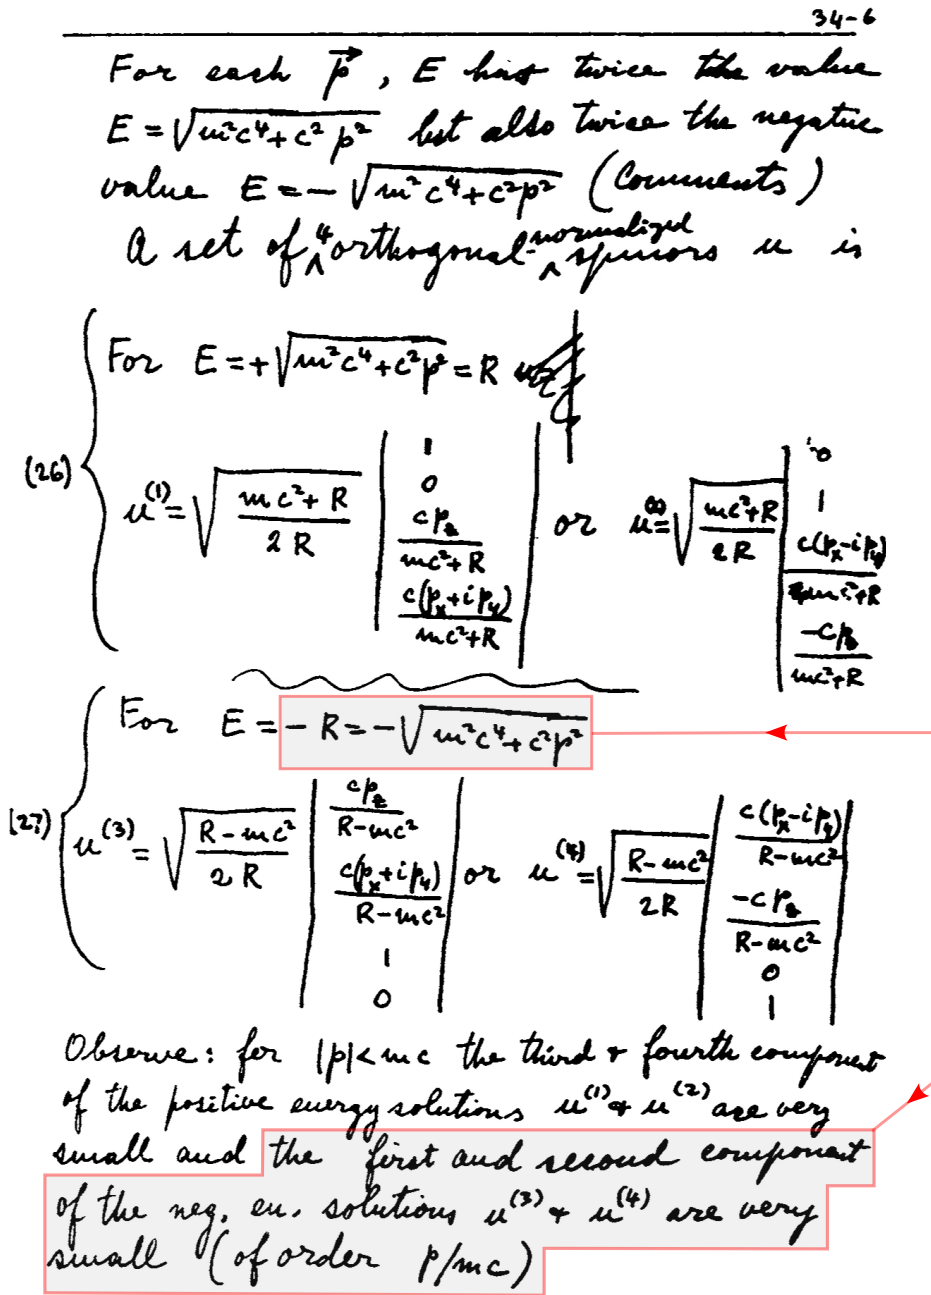 34-6
For each p⃗, E has twice the value
E = √(m²c⁴ + c²p²) but also twice the negative
value E = − √(m²c⁴ + c²p²) (Comments)
A set of 4 orthogonal normalized spinors u is
(26) For E = + √(m²c⁴ + c²p²) = R
u⁽¹⁾ = √((mc² + R)/(2R)) | 1, 0, cp_z/(mc² + R), c(p_x + ip_y)/(mc² + R) | or u⁽²⁾ = √((mc² + R)/(2R)) | 0, 1, c(p_x − ip_y)/(mc² + R), −cp_z/(mc² + R)
(27) For E = − R = − √(m²c⁴ + c²p²)
u⁽³⁾ = √((R − mc²)/(2R)) | cp_z/(R − mc²), c(p_x + ip_y)/(R − mc²), 1, 0 | or u⁽⁴⁾ = √((R − mc²)/(2R)) | c(p_x − ip_y)/(R − mc²), −cp_z/(R − mc²), 0, 1 |
Observe: for |p| < mc the third & fourth component
of the positive energy solutions u⁽¹⁾ & u⁽²⁾ are very
small and the first and second component
of the neg. en. solutions u⁽³⁾ & u⁽⁴⁾ are very
small (of order p/mc)